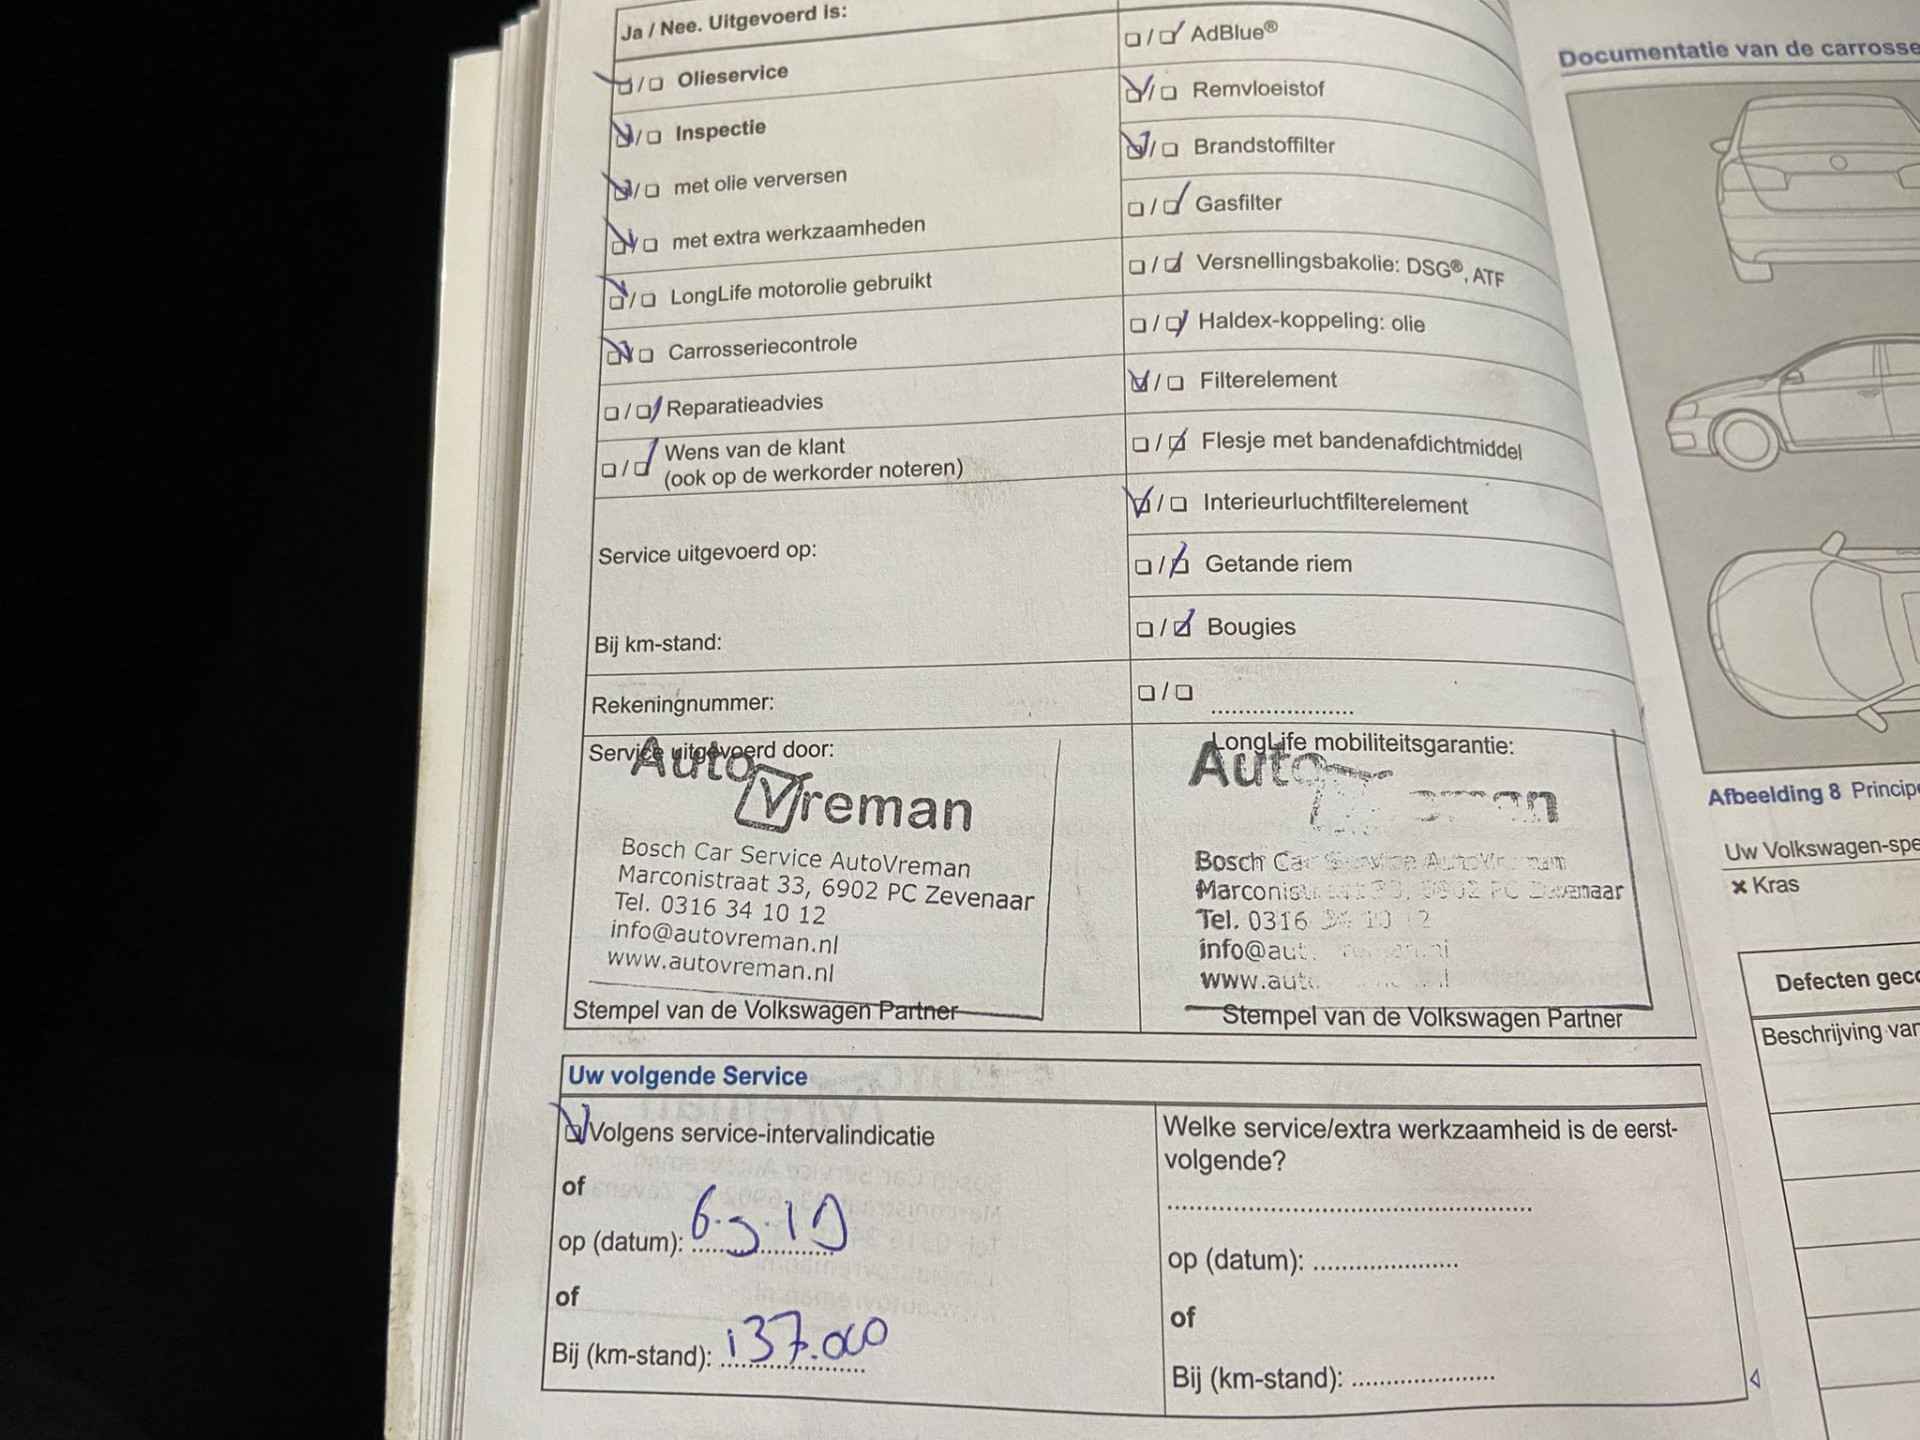 Ja / Nee. Uitgevoerd is:
Olieservice
Inspectie
met olie verversen
met extra werkzaamheden
LongLife motorolie gebruikt
Carrosseriecontrole
Reparatieadvies
Wens van de klant
(ook op de werkorder noteren)
Service uitgevoerd op:
Bij km-stand:
Rekeningnummer:
Service uitgevoerd door:
Auto
Vreman
Bosch Car Service AutoVreman
Marconistraat 33, 6902 PC Zevenaar
Tel. 0316 34 10 12
info@autovreman.nl
www.autovreman.nl
Stempel van de Volkswagen Partner
AdBlue®
Remvloeistof
Brandstoffilter
Gasfilter
Versnellingsbakolie: DSG®, ATF
Haldex-koppeling: olie
Filterelement
Flesje met bandenafdichtmiddel
Interieurluchtfilterelement
Getande riem
Bougies
LongLife mobiliteitsgarantie:
Auto
Bosch Car Service AutoVreman
Marconistraat 33, 6902 PC Zevenaar
Tel. 0316 34 10 12
Stempel van de Volkswagen Partner
Uw volgende Service
Volgens service-intervalindicatie
of
op (datum): 6.3.19
of
Bij (km-stand): 137.000
Welke service/extra werkzaamheid is de eerst-
volgende?
op (datum):
of
Bij (km-stand):
Documentatie van de
Afbeelding 8
Uw
Kras
Defecten
Beschrijving